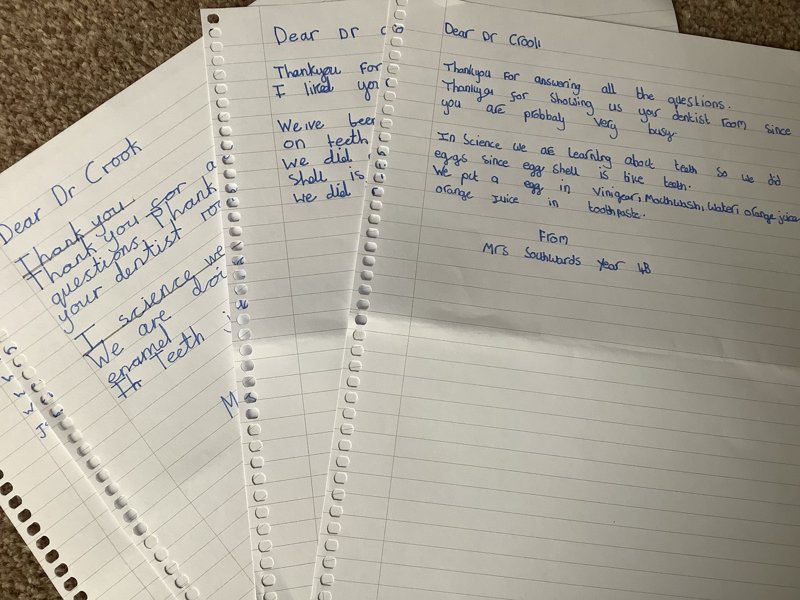 Dear Dr Crook
Thank you
Thank you for a
questions. Thank
your dentist roo
I science we
We are doi
enamel
Th Teeth
Dear Dr
Thankyou For
I liked you
We've beer
on teeth
We did
Shell is
we did
Dear Dr Crook
Thankyou For answering all the questions.
Thankyou For showing us your dentist room since
you are probbaly very busy.
In Science we are learning about teeth so we did
eggs since egg shell is like teeth.
We put a egg in vinigear, Mouthwash, Water, orange juice
orange juice in toothpaste.
From
Mrs Southwards year 4B